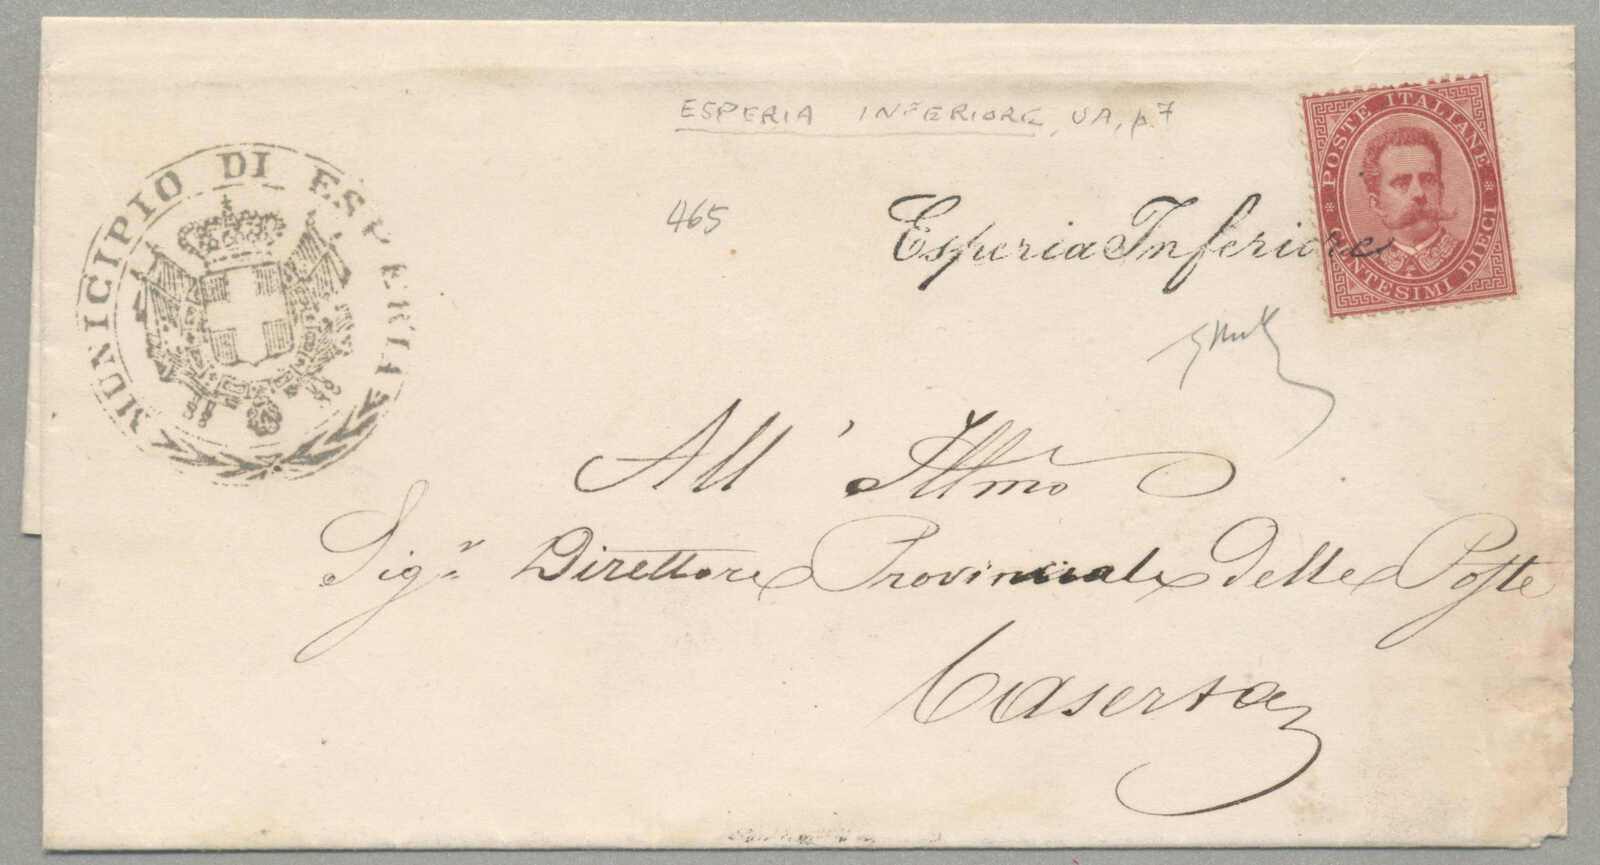 ESPERIA INFERIORE, UA, p. 7
MUNICIPIO DI ESPERIA
465
Esperia Inferiore
POSTE ITALIANE
CENTESIMI DIECI
All' Illmo
Sigr Direttore Provinciale delle Poste
Caserta